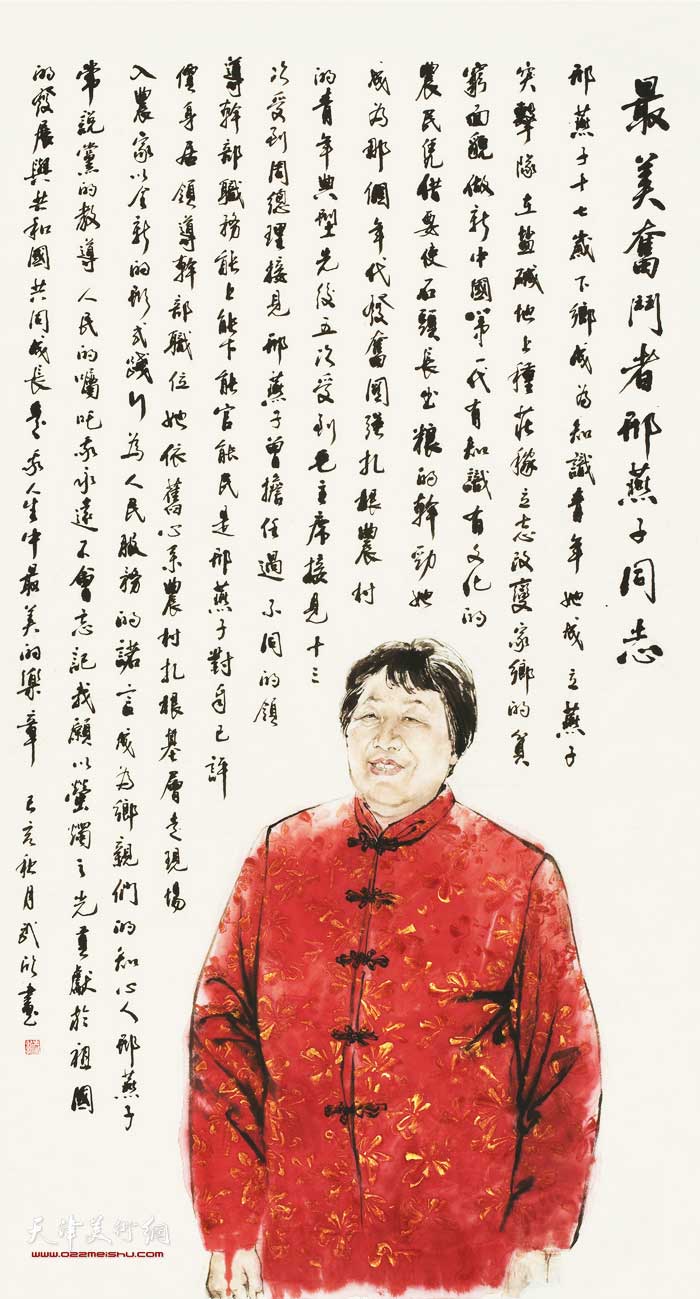 最美奮鬥者邢燕子同志
邢燕子十七歲下鄉成為知識青年她成立燕子
突擊隊在盐碱地上種莊稼立志改變家鄉的貧
窮面貌做新中國第一代有知識有文化的
農民凭借要使石頭長出粮的幹勁她
成為那個年代發奮圖强扎根農村
的青年典型先後五次受到毛主席接見十三
次受到周總理接見邢燕子曾擔任過不同的領
導幹部職務能上能下能官能民是邢燕子對自己評
價身居領導幹部職位她依舊心系農村扎根基層走現場
入農家以全新的形式踐行為人民服務的諾言成為鄉親們的知心人邢燕子
常說黨的教導人民的囑咜我永遠不會忘記我願以螢燭之光貢獻於祖國
的發展與共和國共同成長是我人生中最美的樂章 己亥秋月武欣畫
天津美術網
www.022meishu.com